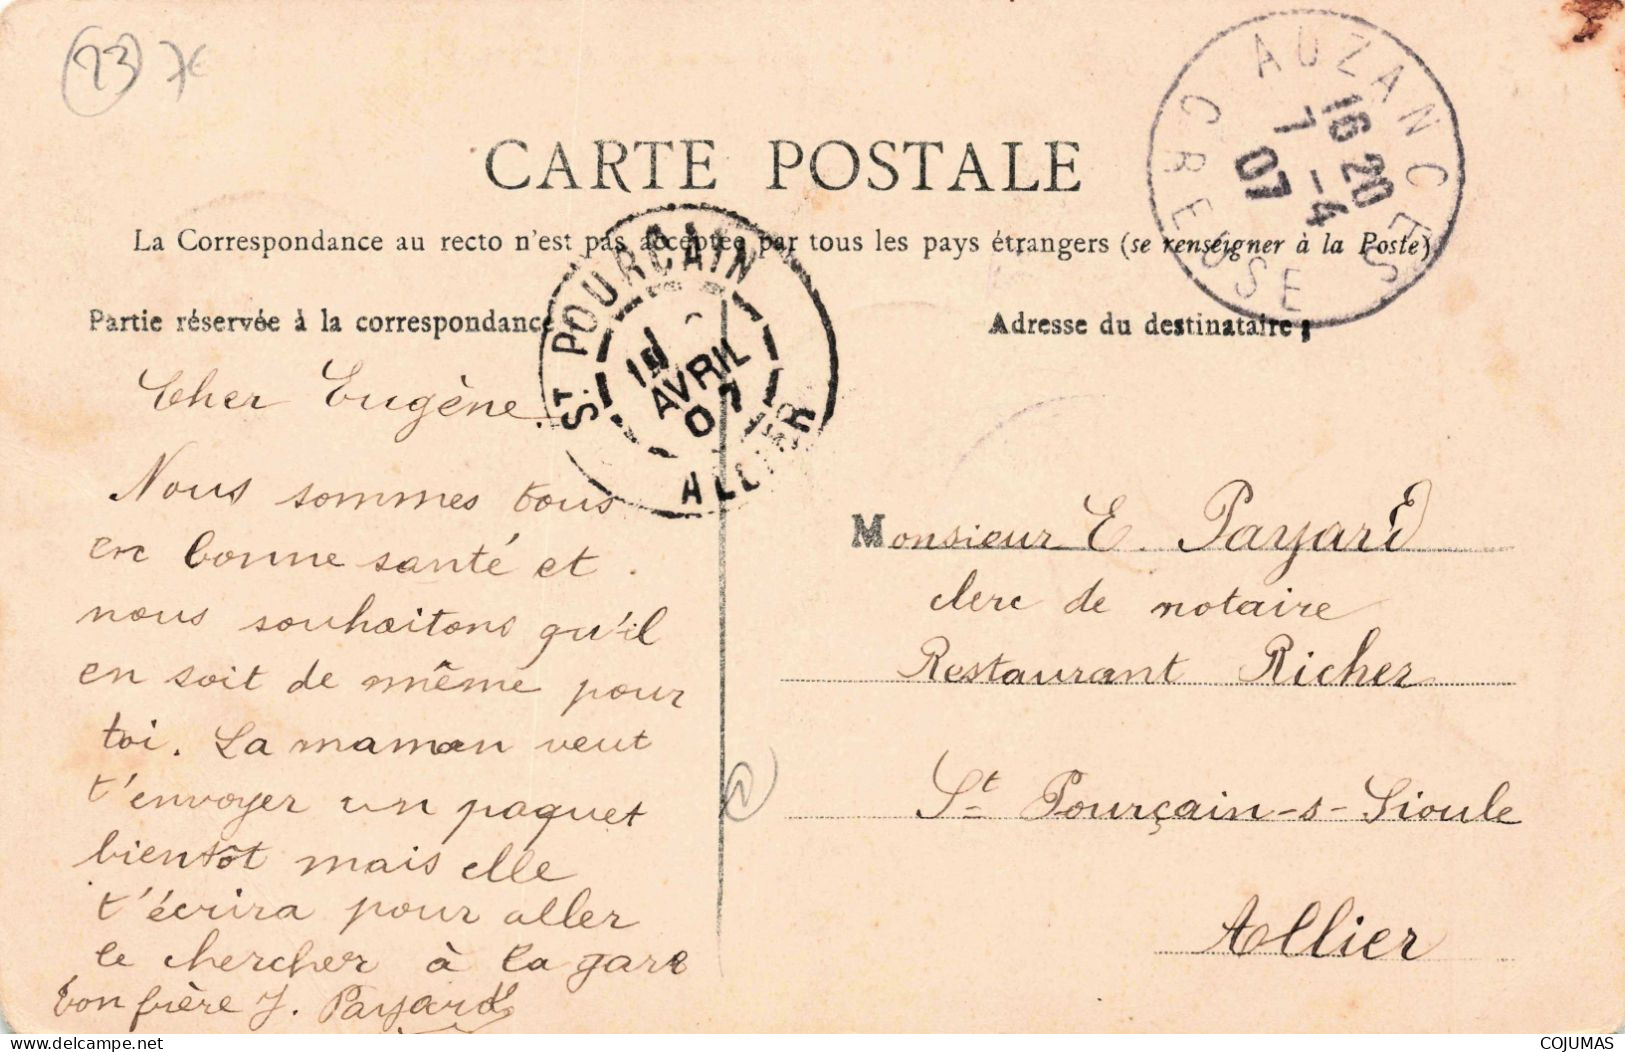 23 7€
AUZANCES
16 20
7 -4
07
CREUSE
CARTE POSTALE
La Correspondance au recto n'est pas acceptée par tous les pays étrangers (se renseigner à la Poste)
ST POURCAIN
AVRIL
07
ALLIER
Partie réservée à la correspondance
Adresse du destinataire :
Cher Eugène.
Nous sommes tous
en bonne santé et
nous souhaitons qu'il
en soit de même pour
toi. La maman veut
t'envoyer un paquet
bientôt mais elle
t'écrira pour aller
le chercher à la gare
ton frère J. Payard
Monsieur E. Payard
clerc de notaire
Restaurant Richer
St Pourçain-s-Sioule
Allier
delcampe.net
COJUMAS